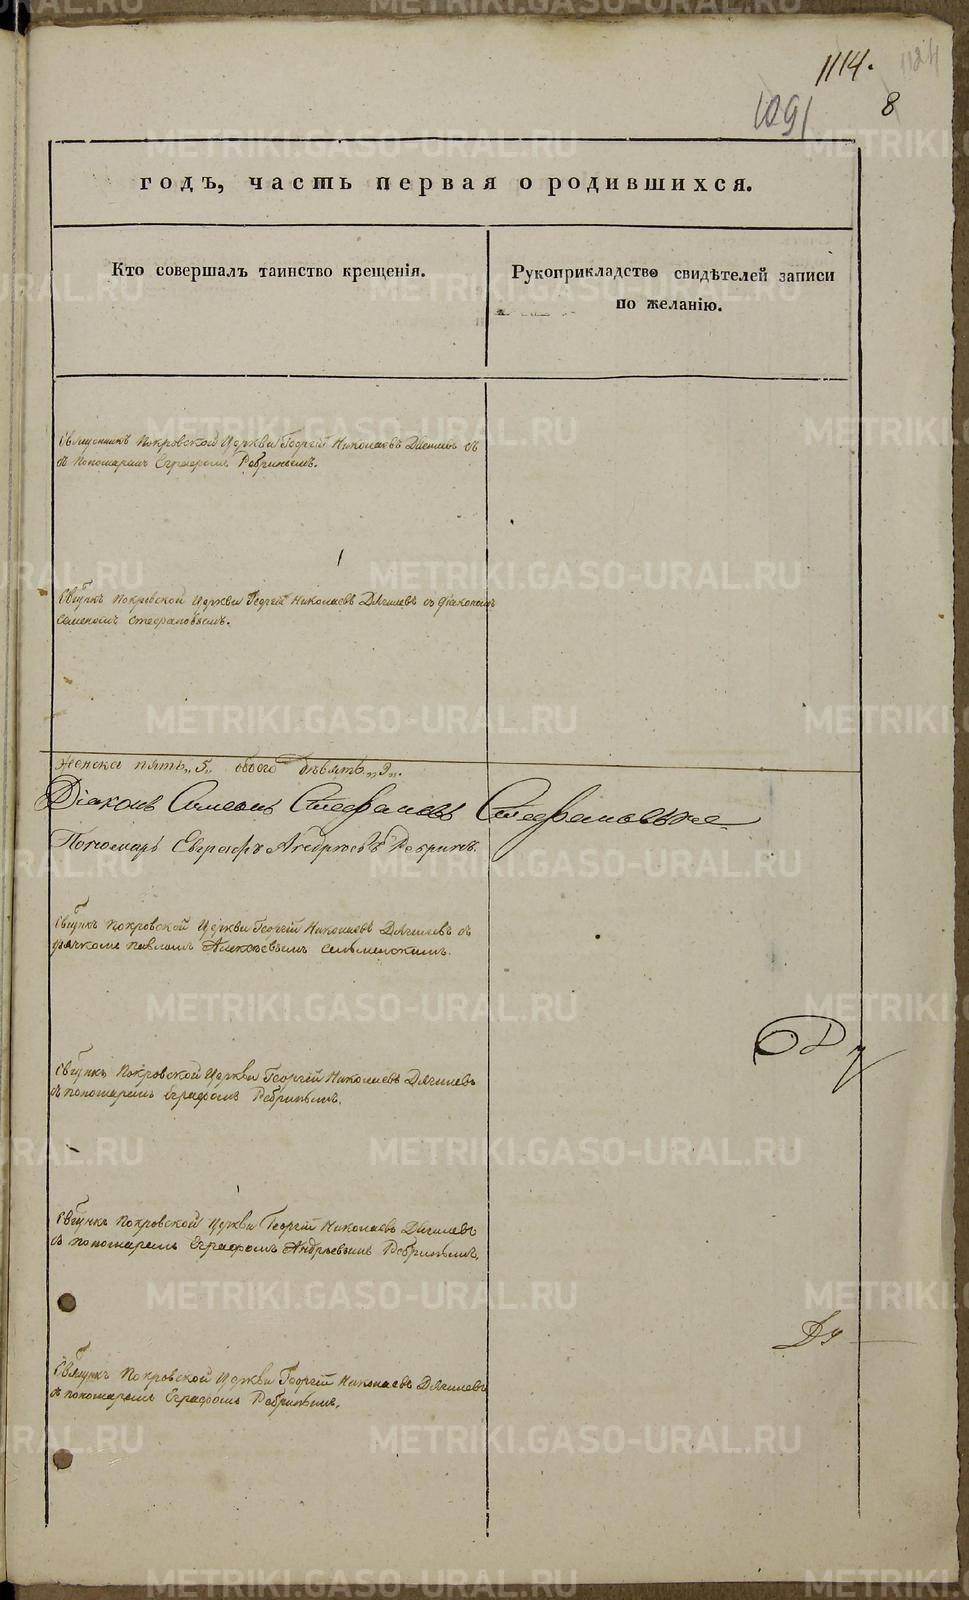 1114.
1091
8
годъ, часть первая о родившихся.
Кто совершалъ таинство крещенія.
Рукоприкладство свидѣтелей записи
по желанію.
Священникъ Покровской Церкви Георгій Николаевъ съ
Пономаремъ Ребринымъ.
Покровской Церкви Георгій Николаевъ Дягилевъ съ діакономъ
Семеномъ Стефановымъ.
Женска пять „5„ обоего девять „9„.
Діаконъ Симеонъ Стефановъ
Пономарь Евграфъ Андреевъ Ребринъ.
Покровской Церкви Георгій Николаевъ Дягилевъ съ
дьячкомъ Павломъ Алексѣевымъ
Покровской Церкви Георгій Николаевъ Дягилевъ
съ пономаремъ Еграфомъ Ребринымъ.
Покровской Церкви Георгій Николаевъ Дягилевъ
съ пономаремъ Еграфомъ Андреевымъ Ребринымъ.
Покровской Церкви Георгій Николаевъ Дягилевъ
съ пономаремъ Еграфомъ Ребринымъ.
METRIKI.GASO-URAL.RU